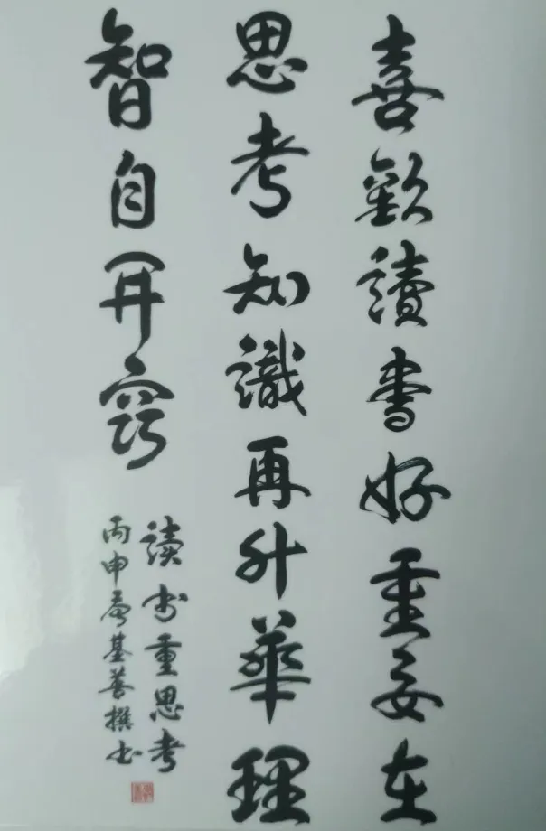 喜歡讀書好重要在
思考知識再升華理
智自開窍
讀书重思考
丙申基善撰书